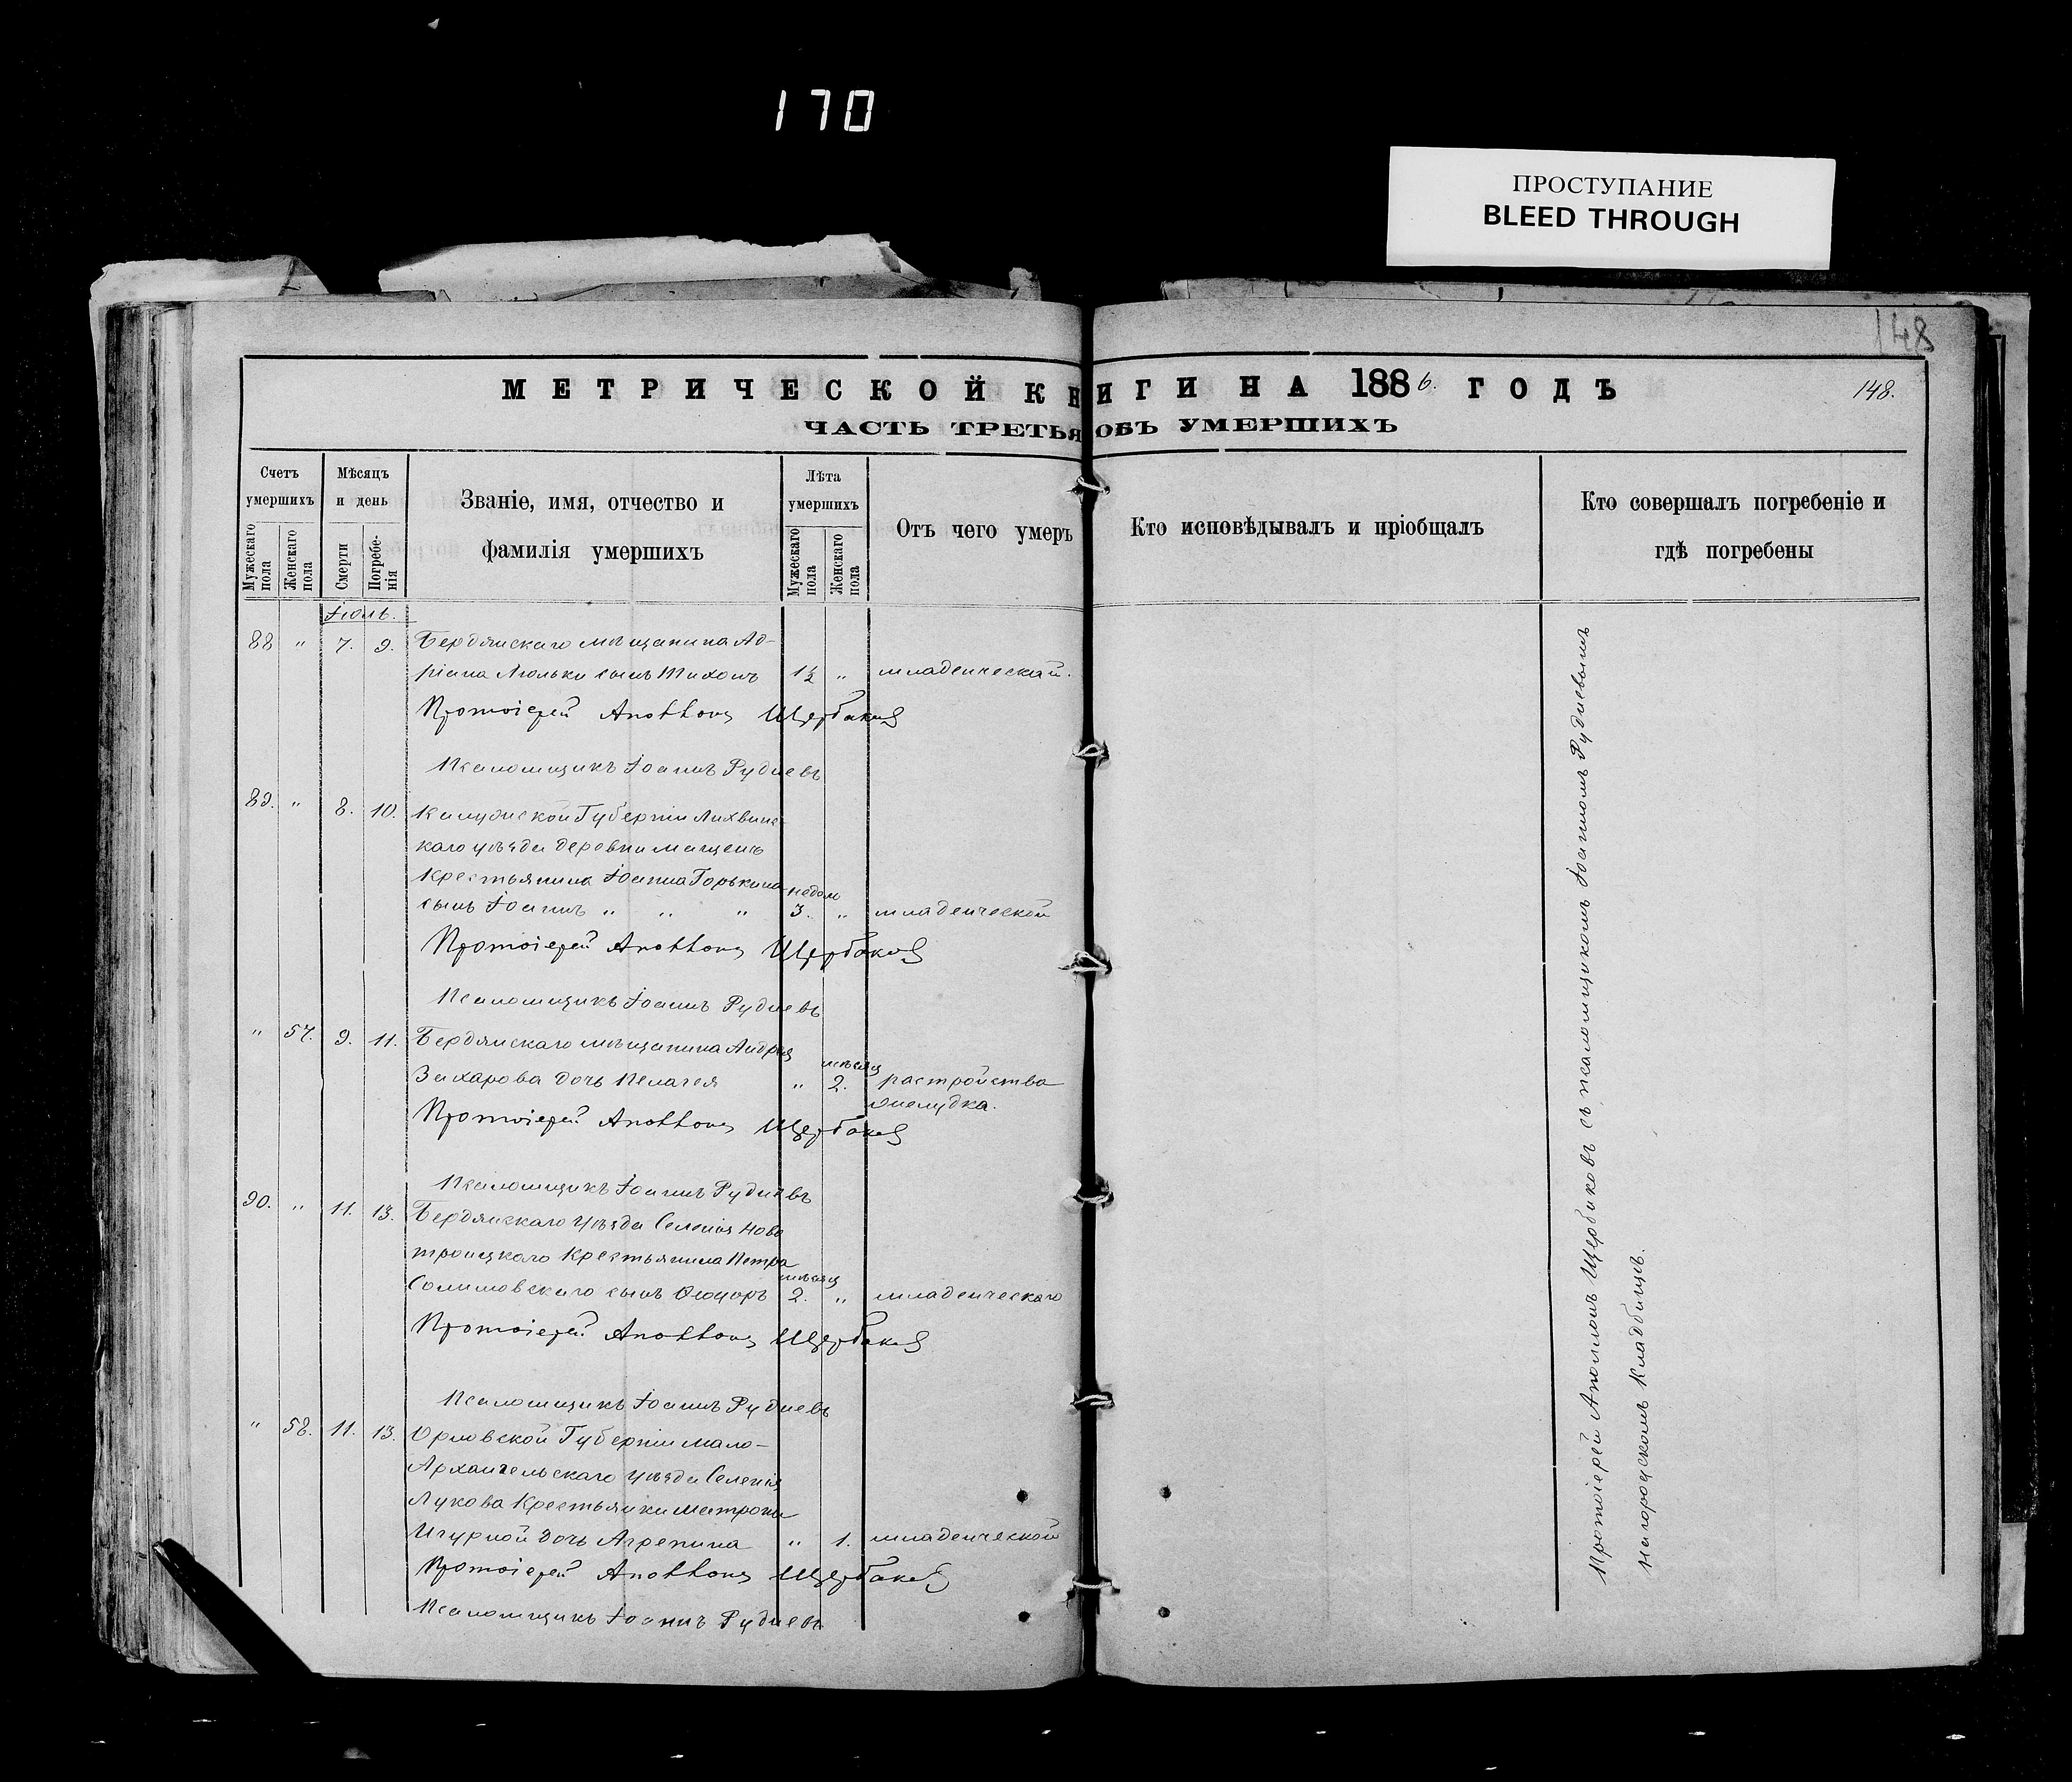 170
ПРОСТУПАНИЕ
BLEED THROUGH
148
МЕТРИЧЕСКОЙ КНИГИ НА 1886. ГОДЪ
148.
ЧАСТЬ ТРЕТЬЯ ОБЪ УМЕРШИХЪ
Счетъ умершихъ
Мужескаго пола
Женскаго пола
Мѣсяцъ и день
Смерти
Погребенія
Званіе, имя, отчество и
фамилія умершихъ
Лѣта умершихъ
Мужескаго пола
Женскаго пола
Отъ чего умеръ
Кто исповѣдывалъ и пріобщалъ
Кто совершалъ погребеніе и
гдѣ погребены
Іюль.
88 " 7. 9. Бердянскаго мѣщанина Ад-
ріана Люльки сынъ Тихонъ 1½ " младенческой.
Протоіерей Аполлонъ Щербаковъ
Псаломщикъ Іоаннъ Рудневъ
89. " 8. 10. Калужской Губерніи Лихвинс-
каго уѣзда деровни Мащенъ
Крестьянина Іоанна Горькина недѣл
сынъ Іоаннъ " " " 3. " младенческой
Протоіерей Аполлонъ Щербаковъ
Псаломщикъ Іоаннъ Рудневъ
" 57. 9. 11. Бердянскаго мѣщанина Андрея
мѣсяц
Захарова дочь Пелагея " 2. растройства
желудка.
Протоіерей Аполлонъ Щербаковъ
Псаломщикъ Іоаннъ Рудневъ
90. " 11. 13. Бердянскаго уѣзда Селенія Ново
троицкаго Крестьянина Петра
мѣсяц
Солимовскаго сынъ Ѳеодоръ 2. " младенческаго
Протоіерей Аполлонъ Щербаковъ
Псаломщикъ Іоаннъ Рудневъ
" 58. 11. 13. Орловской Губерніи Мало-
Архангельскаго уѣзда Селенія
Лукова Крестьянки Матроны
дочь Агрепина " 1. младенческой
Протоіерей Аполлонъ Щербаковъ
Псаломщикъ Іоаннъ Рудневъ
Протоіерей Аполлонъ Щербаковъ съ псаломщикомъ Іоанномъ Рудневымъ
На городскомъ Кладбищѣ.